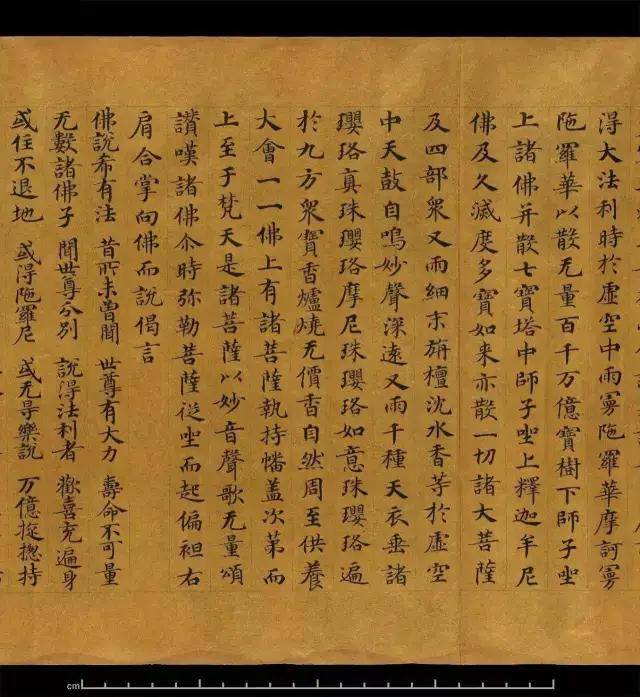 得大法利時於虛空中雨曼陁羅華摩訶曼
陁羅華以散无量百千万億寶樹下師子㘴
上諸佛并散七寶塔中師子㘴上釋迦牟尼
佛及久滅度多寶如来亦散一切諸大菩薩
及四部衆又雨細末旃檀沈水香等於虛空
中天鼓自鳴妙聲深遠又雨千種天衣垂諸
瓔珞真珠瓔珞摩尼珠瓔珞如意珠瓔珞遍
於九方衆寶香爐燒无價香自然周至供養
大會一一佛上有諸菩薩執持幡盖次第而
上至于梵天是諸菩薩以妙音聲歌无量頌
讃嘆諸佛尒時弥勒菩薩從㘴而起偏袒右
肩合掌向佛而說偈言
佛說希有法 昔所未曾聞 世尊有大力 壽命不可量
无數諸佛子 聞世尊分別 說得法利者 歡喜充遍身
或住不退地 或得陁羅尼 或无㝵樂說 万億旋揔持
cm